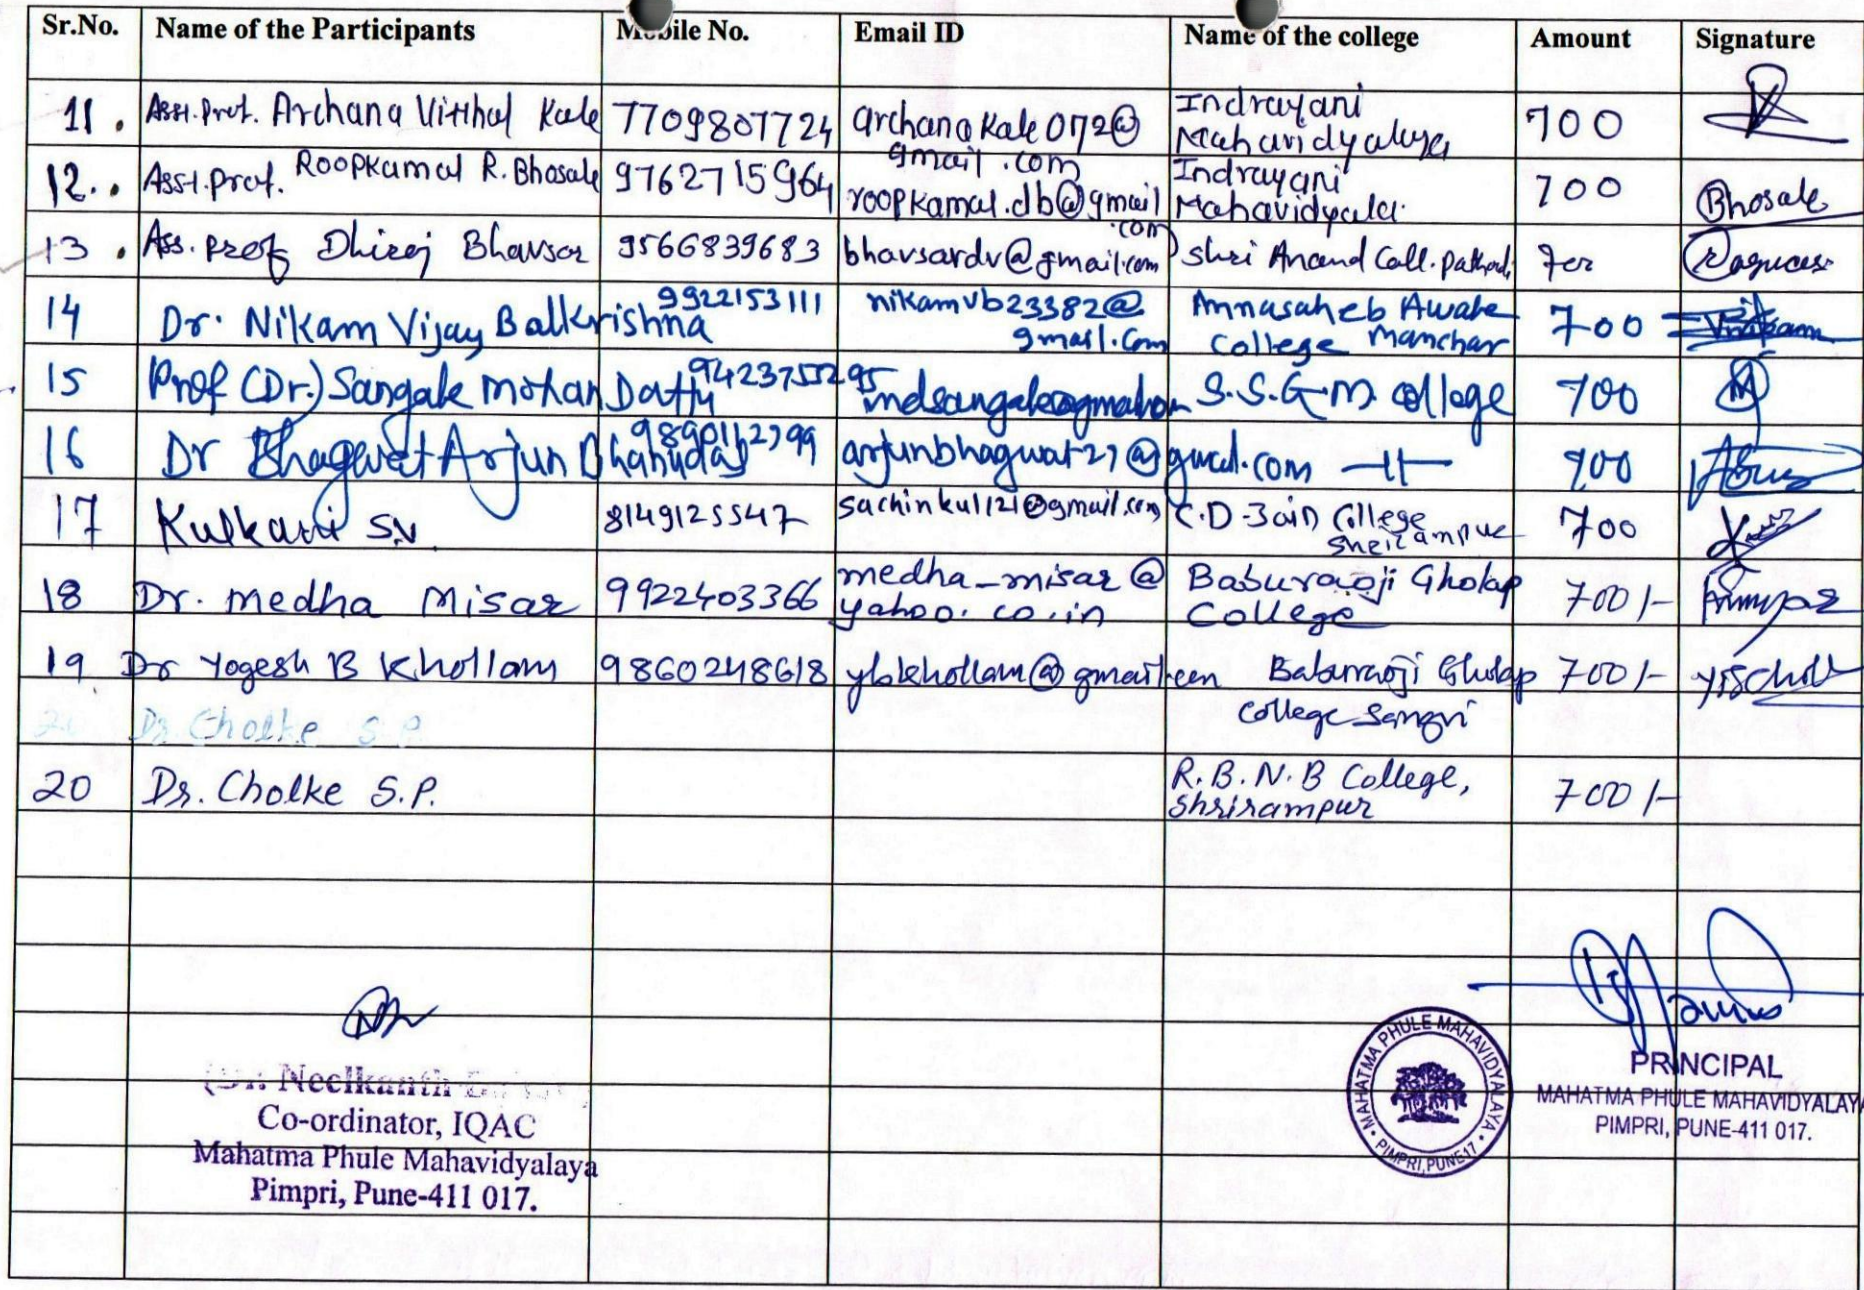 Sr.No. Name of the Participants Mobile No. Email ID Name of the college Amount Signature
11. Asst.Prof. Archana Vitthal Kale 7709807724 archanakale072@ Indrayani 700
gmail.com Mahavidyalaya
12. Asst.Prof. Roopkamal R. Bhosale 9762715964 roopkamal.db@gmail Indrayani 700 Bhosale
.com Mahavidyala.
13. Ass. Prof Dhiraj Bhavsar 9566839683 bhavsardv@gmail.com Shri Anand Coll. Pathardi 700
14 Dr. Nikam Vijay Balkrishna 9922153111 nikamvb23382@ Annasaheb Awate 700
gmail.com College Manchar
15 Prof (Dr.) Sangale Mohan Dattu S.S.G.M. College 700
16 Dr Bhagwat Arjun Bhanudas arjunbhagwat27@gmail.com -11- 700
17 Kulkarni S.V. 8149125547 sachinkul121@gmail.com C.D Jain College 700
Shrirampur
18 Dr. Medha Misar 9922403366 medha_misar@ Baburaoji Gholap 700/-
yahoo.co.in College
19. Dr Yogesh B Khollam 9860248618 ybkhollam@gmail.com Baburaoji Gholap 700/-
College Sangvi
20 Dr. Cholke S.P.
20 Dr. Cholke S.P. R.B.N.B College, 700/-
Shrirampur
Neelkanth
Co-ordinator, IQAC
Mahatma Phule Mahavidyalaya
Pimpri, Pune-411 017.
MAHATMA PHULE MAHAVIDYALAYA
PIMPRI, PUNE-17
PRINCIPAL
MAHATMA PHULE MAHAVIDYALAYA
PIMPRI, PUNE-411 017.